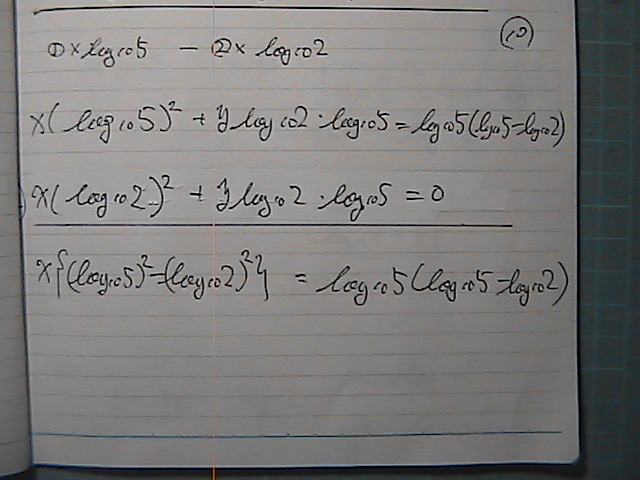 ⑩
①×log₁₀5 − ②×log₁₀2
x(log₁₀5)² + y log₁₀2・log₁₀5 = log₁₀5(log₁₀5−log₁₀2)
x(log₁₀2)² + y log₁₀2・log₁₀5 = 0
x{(log₁₀5)²−(log₁₀2)²} = log₁₀5(log₁₀5−log₁₀2)